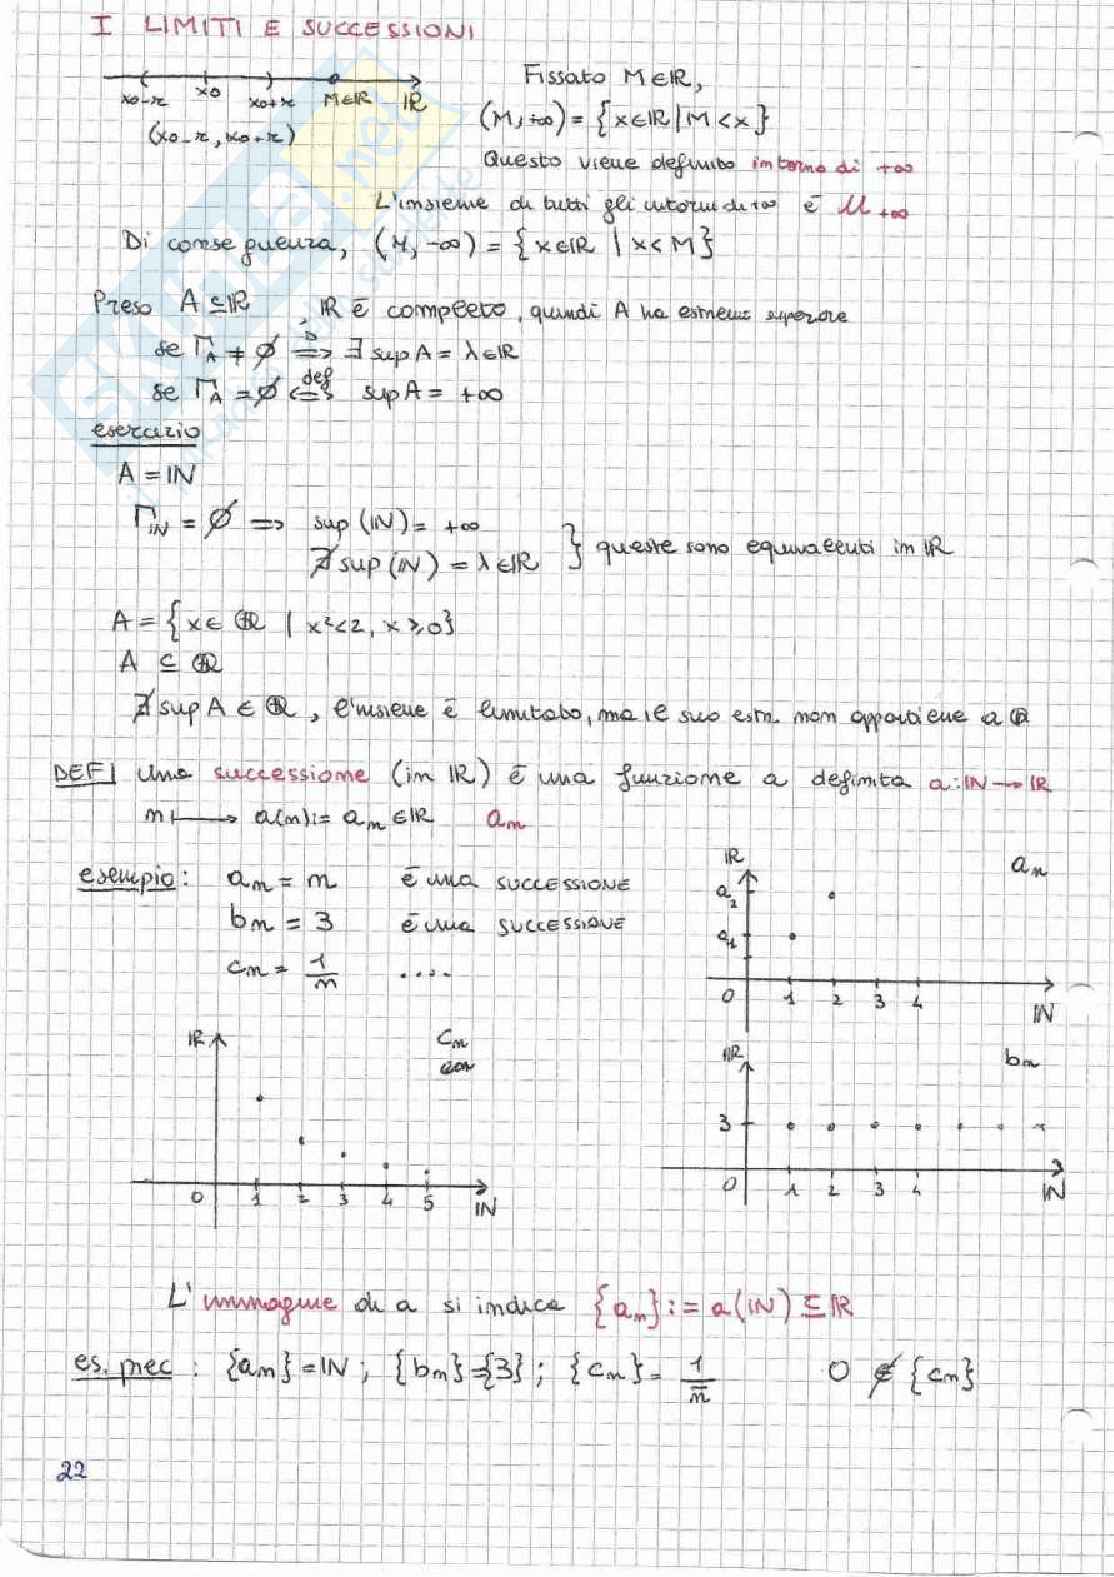 I LIMITI E SUCCESSIONI
x0-r x0 x0+r M∈ℝ ℝ
(x0-r, x0+r)
Fissato M∈ℝ,
(M,+∞) = {x∈ℝ | M<x}
Questo viene definito intorno di +∞
L'insieme di tutti gli intorni di +∞ è U+∞
Di conseguenza, (M,-∞) = {x∈ℝ | x<M}
Preso A⊆ℝ, ℝ è completo, quindi A ha estremo superiore
se Γ_A ≠ ∅ ⇒ ∃ sup A = λ∈ℝ
se Γ_A = ∅ ⇔ def sup A = +∞
esercizio
A = ℕ
Γ_ℕ = ∅ ⇒ sup(ℕ) = +∞
∄ sup(ℕ) = λ∈ℝ } queste sono equivalenti in ℝ
A = {x∈ℚ | x²<2, x≥0}
A ⊆ ℚ
∄ sup A ∈ ℚ, l'insieme è limitato, ma il suo estr. non appartiene a ℚ
DEF| Una successione (in ℝ) è una funzione a definita a:ℕ→ℝ
n ⟼ a(n):= a_n ∈ℝ a_n
esempio: a_n = n è una SUCCESSIONE
b_n = 3 è una SUCCESSIONE
c_n = 1/n ....
ℝ a_n
a2
a1
0 1 2 3 4 ℕ
ℝ c_n
0 1 2 3 4 5 ℕ
ℝ b_n
3
0 1 2 3 4 ℕ
L'immagine di a si indica {a_n} := a(ℕ) ⊆ ℝ
es. prec: {a_n}=ℕ; {b_n}={3}; {c_n}= 1/n 0 ∉ {c_n}
22